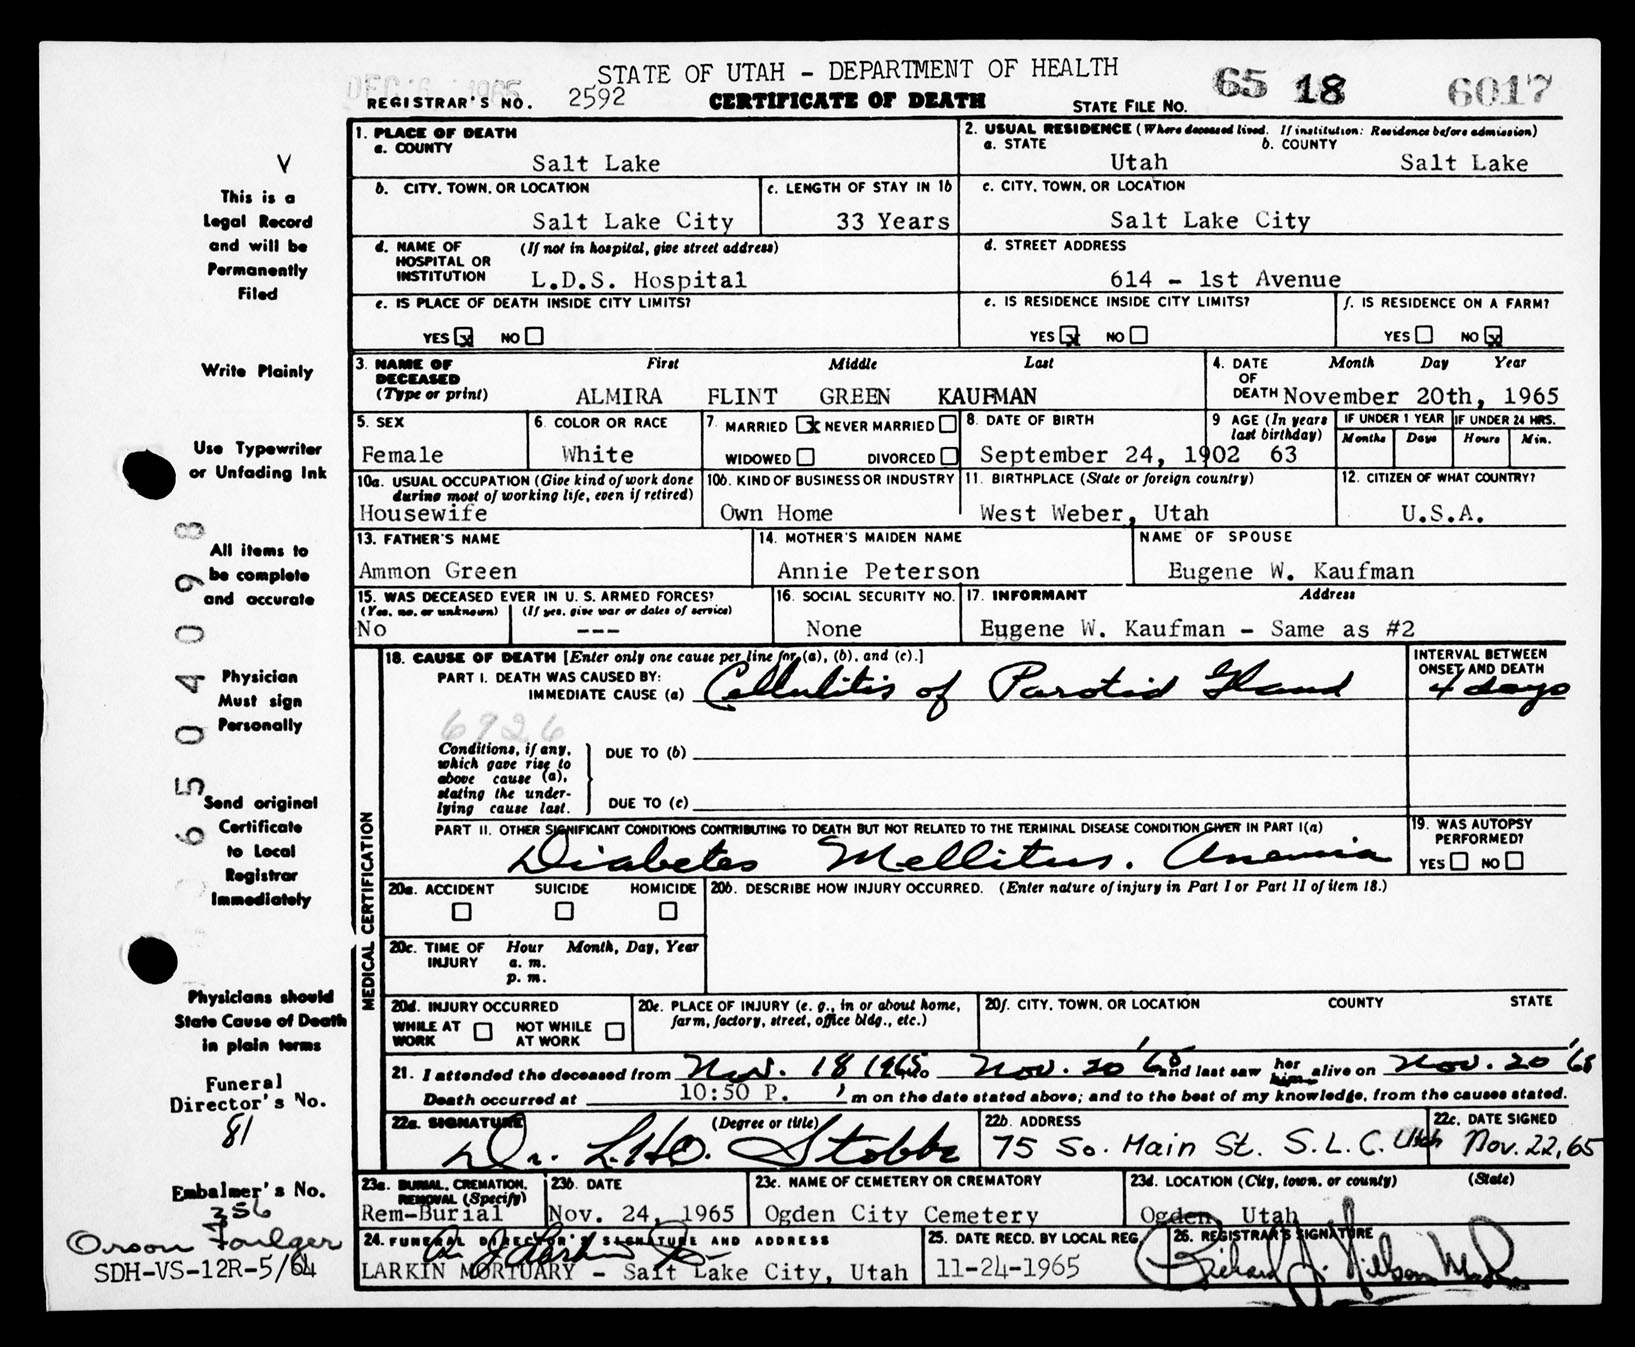 DEC 6 1965
STATE OF UTAH - DEPARTMENT OF HEALTH
65 18 6017
REGISTRAR'S NO. 2592 CERTIFICATE OF DEATH STATE FILE NO.
V
This is a
Legal Record
and will be
Permanently
Filed
Write Plainly
Use Typewriter
or Unfading Ink
All items to
be complete
and accurate
Physician
Must sign
Personally
Send original
Certificate
to Local
Registrar
Immediately
Physicians should
State Cause of Death
in plain terms
Funeral
Director's No.
81
Embalmer's No.
356
Orson Foulger
SDH-VS-12R-5/64
6504098
1. PLACE OF DEATH
a. COUNTY
Salt Lake
2. USUAL RESIDENCE (Where deceased lived. If institution: Residence before admission)
a. STATE b. COUNTY
Utah Salt Lake
b. CITY, TOWN, OR LOCATION
Salt Lake City
c. LENGTH OF STAY IN 1b
33 Years
c. CITY, TOWN, OR LOCATION
Salt Lake City
d. NAME OF HOSPITAL OR INSTITUTION (If not in hospital, give street address)
L.D.S. Hospital
d. STREET ADDRESS
614 - 1st Avenue
e. IS PLACE OF DEATH INSIDE CITY LIMITS?
YES x NO
e. IS RESIDENCE INSIDE CITY LIMITS?
YES x NO
f. IS RESIDENCE ON A FARM?
YES NO x
3. NAME OF DECEASED (Type or print) First Middle Last
ALMIRA FLINT GREEN KAUFMAN
4. DATE OF DEATH Month Day Year
November 20th, 1965
5. SEX
Female
6. COLOR OR RACE
White
7. MARRIED x NEVER MARRIED
WIDOWED DIVORCED
8. DATE OF BIRTH
September 24, 1902
9 AGE (In years last birthday)
63
IF UNDER 1 YEAR IF UNDER 24 HRS.
Months Days Hours Min.
10a. USUAL OCCUPATION (Give kind of work done during most of working life, even if retired)
Housewife
10b. KIND OF BUSINESS OR INDUSTRY
Own Home
11. BIRTHPLACE (State or foreign country)
West Weber, Utah
12. CITIZEN OF WHAT COUNTRY?
U.S.A.
13. FATHER'S NAME
Ammon Green
14. MOTHER'S MAIDEN NAME
Annie Peterson
NAME OF SPOUSE
Eugene W. Kaufman
15. WAS DECEASED EVER IN U. S. ARMED FORCES?
(Yes, no, or unknown) (If yes, give war or dates of service)
No ---
16. SOCIAL SECURITY NO.
None
17. INFORMANT Address
Eugene W. Kaufman - Same as #2
MEDICAL CERTIFICATION
18. CAUSE OF DEATH [Enter only one cause per line for (a), (b), and (c).]
INTERVAL BETWEEN ONSET AND DEATH
PART I. DEATH WAS CAUSED BY:
IMMEDIATE CAUSE (a) Cellulitis of Parotid Gland 4 days
6926
Conditions, if any, which gave rise to above cause (a), stating the underlying cause last.
DUE TO (b)
DUE TO (c)
PART II. OTHER SIGNIFICANT CONDITIONS CONTRIBUTING TO DEATH BUT NOT RELATED TO THE TERMINAL DISEASE CONDITION GIVEN IN PART I(a)
Diabetes Mellitus. Anemia
19. WAS AUTOPSY PERFORMED?
YES NO
20a. ACCIDENT SUICIDE HOMICIDE
20b. DESCRIBE HOW INJURY OCCURRED. (Enter nature of injury in Part I or Part II of item 18.)
20c. TIME OF INJURY Hour Month, Day, Year
a. m.
p. m.
20d. INJURY OCCURRED
WHILE AT WORK NOT WHILE AT WORK
20e. PLACE OF INJURY (e. g., in or about home, farm, factory, street, office bldg., etc.)
20f. CITY, TOWN, OR LOCATION COUNTY STATE
21. I attended the deceased from Nov. 18 1965 to Nov. 20 '65 and last saw her him alive on Nov. 20 '65
Death occurred at 10:50 P. m on the date stated above; and to the best of my knowledge, from the causes stated.
22a. SIGNATURE (Degree or title)
Dr. L.H.O. Stobbe
22b. ADDRESS
75 So. Main St. S.L.C. Utah
22c. DATE SIGNED
Nov. 22, 65
23a. BURIAL, CREMATION, REMOVAL (Specify)
Rem-Burial
23b. DATE
Nov. 24, 1965
23c. NAME OF CEMETERY OR CREMATORY
Ogden City Cemetery
23d. LOCATION (City, town, or county) (State)
Ogden, Utah
24. FUNERAL DIRECTOR'S SIGNATURE AND ADDRESS
LARKIN MORTUARY - Salt Lake City, Utah
25. DATE RECD. BY LOCAL REG.
11-24-1965
26. REGISTRAR'S SIGNATURE